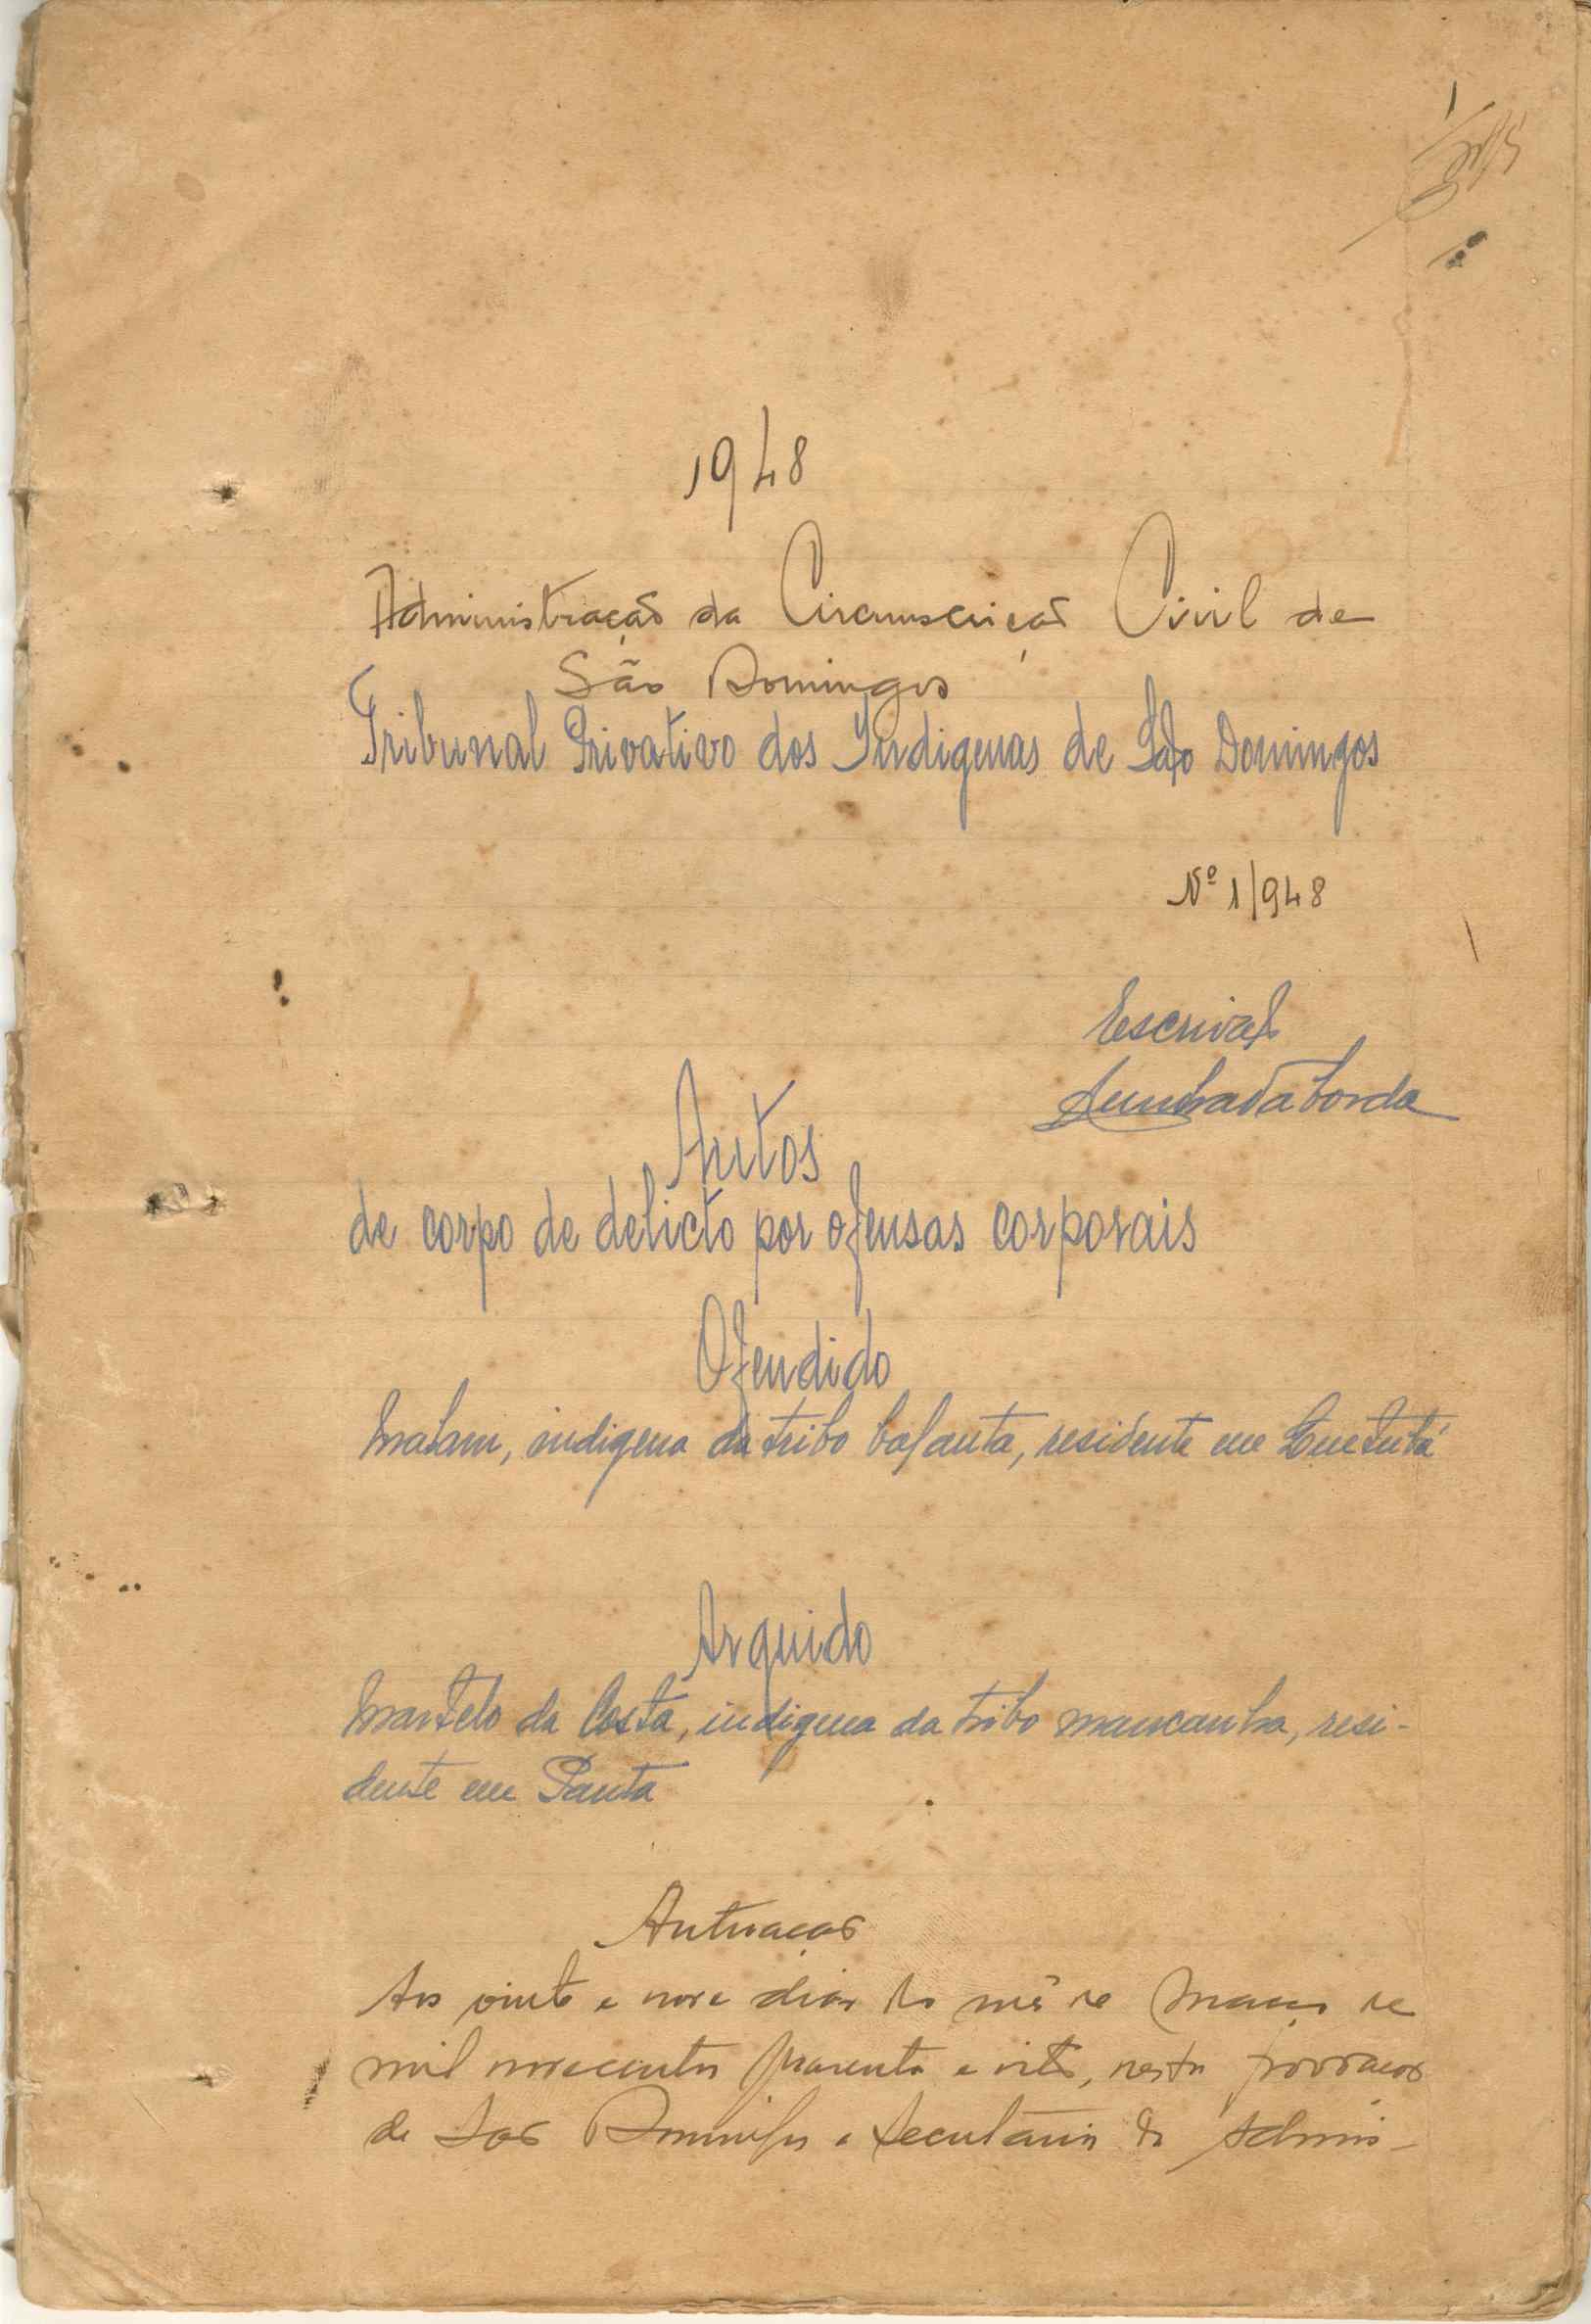 1
1948
Administração da Circunscrição Civil de
São Domingos
Tribunal Privativo dos Indigenas de São Domingos
Nº 1/948
Escrivão
Autos
de corpo de delicto por ofensas corporais
Ofendido
Malam, indigena da tribo balanta, residente em
Arquido
Martelo da Costa, indigena da tribo mancanha, resi-
dente em
Autuação
Aos vinte e nove dias do mês de Março de
mil novecentos quarenta e oito, nesta povoação
de São Domingos e Secretaria da Adminis-